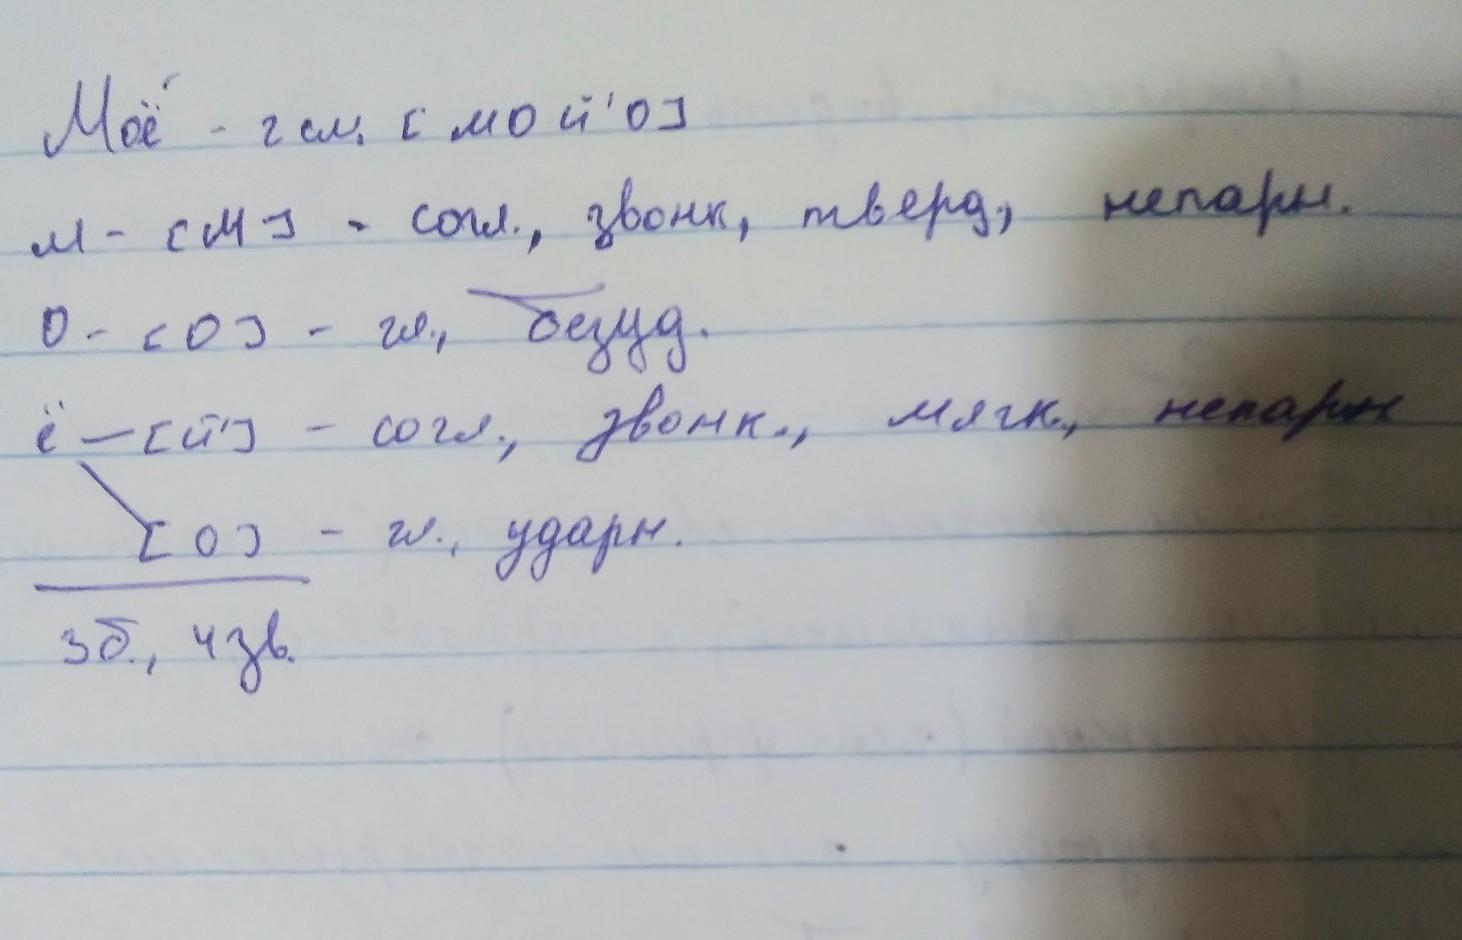 Моё́ - 2 сл. [мой'о]
м - [м] - согл., звонк, тверд, непарн.
о - [о] - гл., безуд.
ё - [й'] - согл., звонк., мягк., непарн
[о] - гл., ударн.
3б., 4зв.